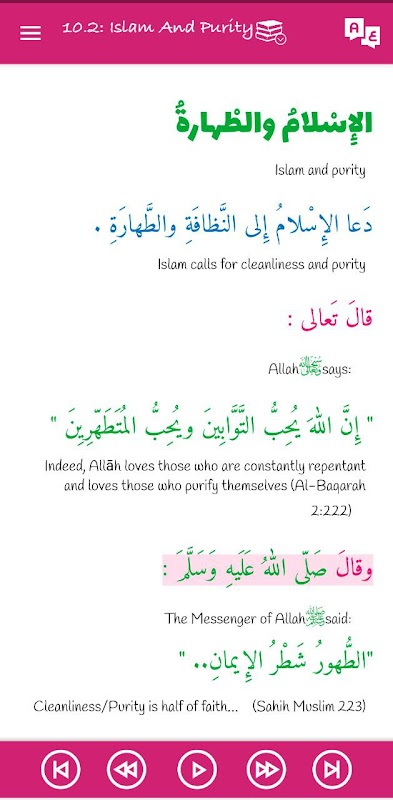 10.2: Islam And Purity
A ع
الإِسْلامُ والطْهارةُ
Islam and purity
دَعا الإِسْلامُ إِلى النَّظافَةِ والطَّهارَةِ .
Islam calls for cleanliness and purity
قالَ تَعالى :
Allah ﷾ says:
" إِنَّ اللهَ يُحِبُّ التَّوَّابِينَ ويُحِبُّ المُتَطَهِّرِينَ "
Indeed, Allāh loves those who are constantly repentant
and loves those who purify themselves (Al-Baqarah
2:222)
وقالَ صَلّى اللهُ عَلَيهِ وَسَلَّمَ :
The Messenger of Allah ﷺ said:
"الطُّهورُ شَطْرُ الإِيمانِ.. "
Cleanliness/Purity is half of faith... (Sahih Muslim 223)